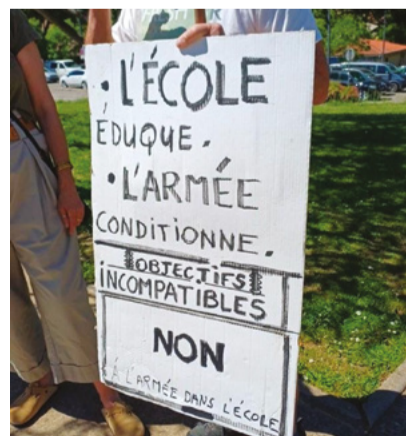 • L'ÉCOLE
ÉDUQUE.
• L'ARMÉE
CONDITIONNE.
OBJECTIFS
INCOMPATIBLES
NON
À L'ARMÉE DANS L'ÉCOLE